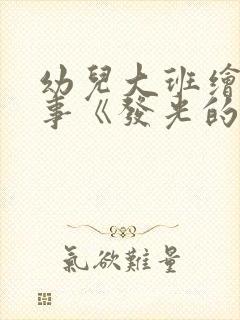 幼兒大班繪
事《發光的
氣欲難量